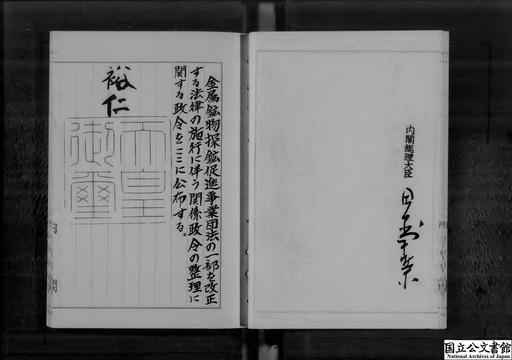 金属鉱物探鉱促進事業団法の一部を改正
する法律の施行に伴う関係政令の整理に
関する政令をここに公布する。
裕仁
天皇
御璽
内閣総理大臣
国立公文書館
National Archives of Japan